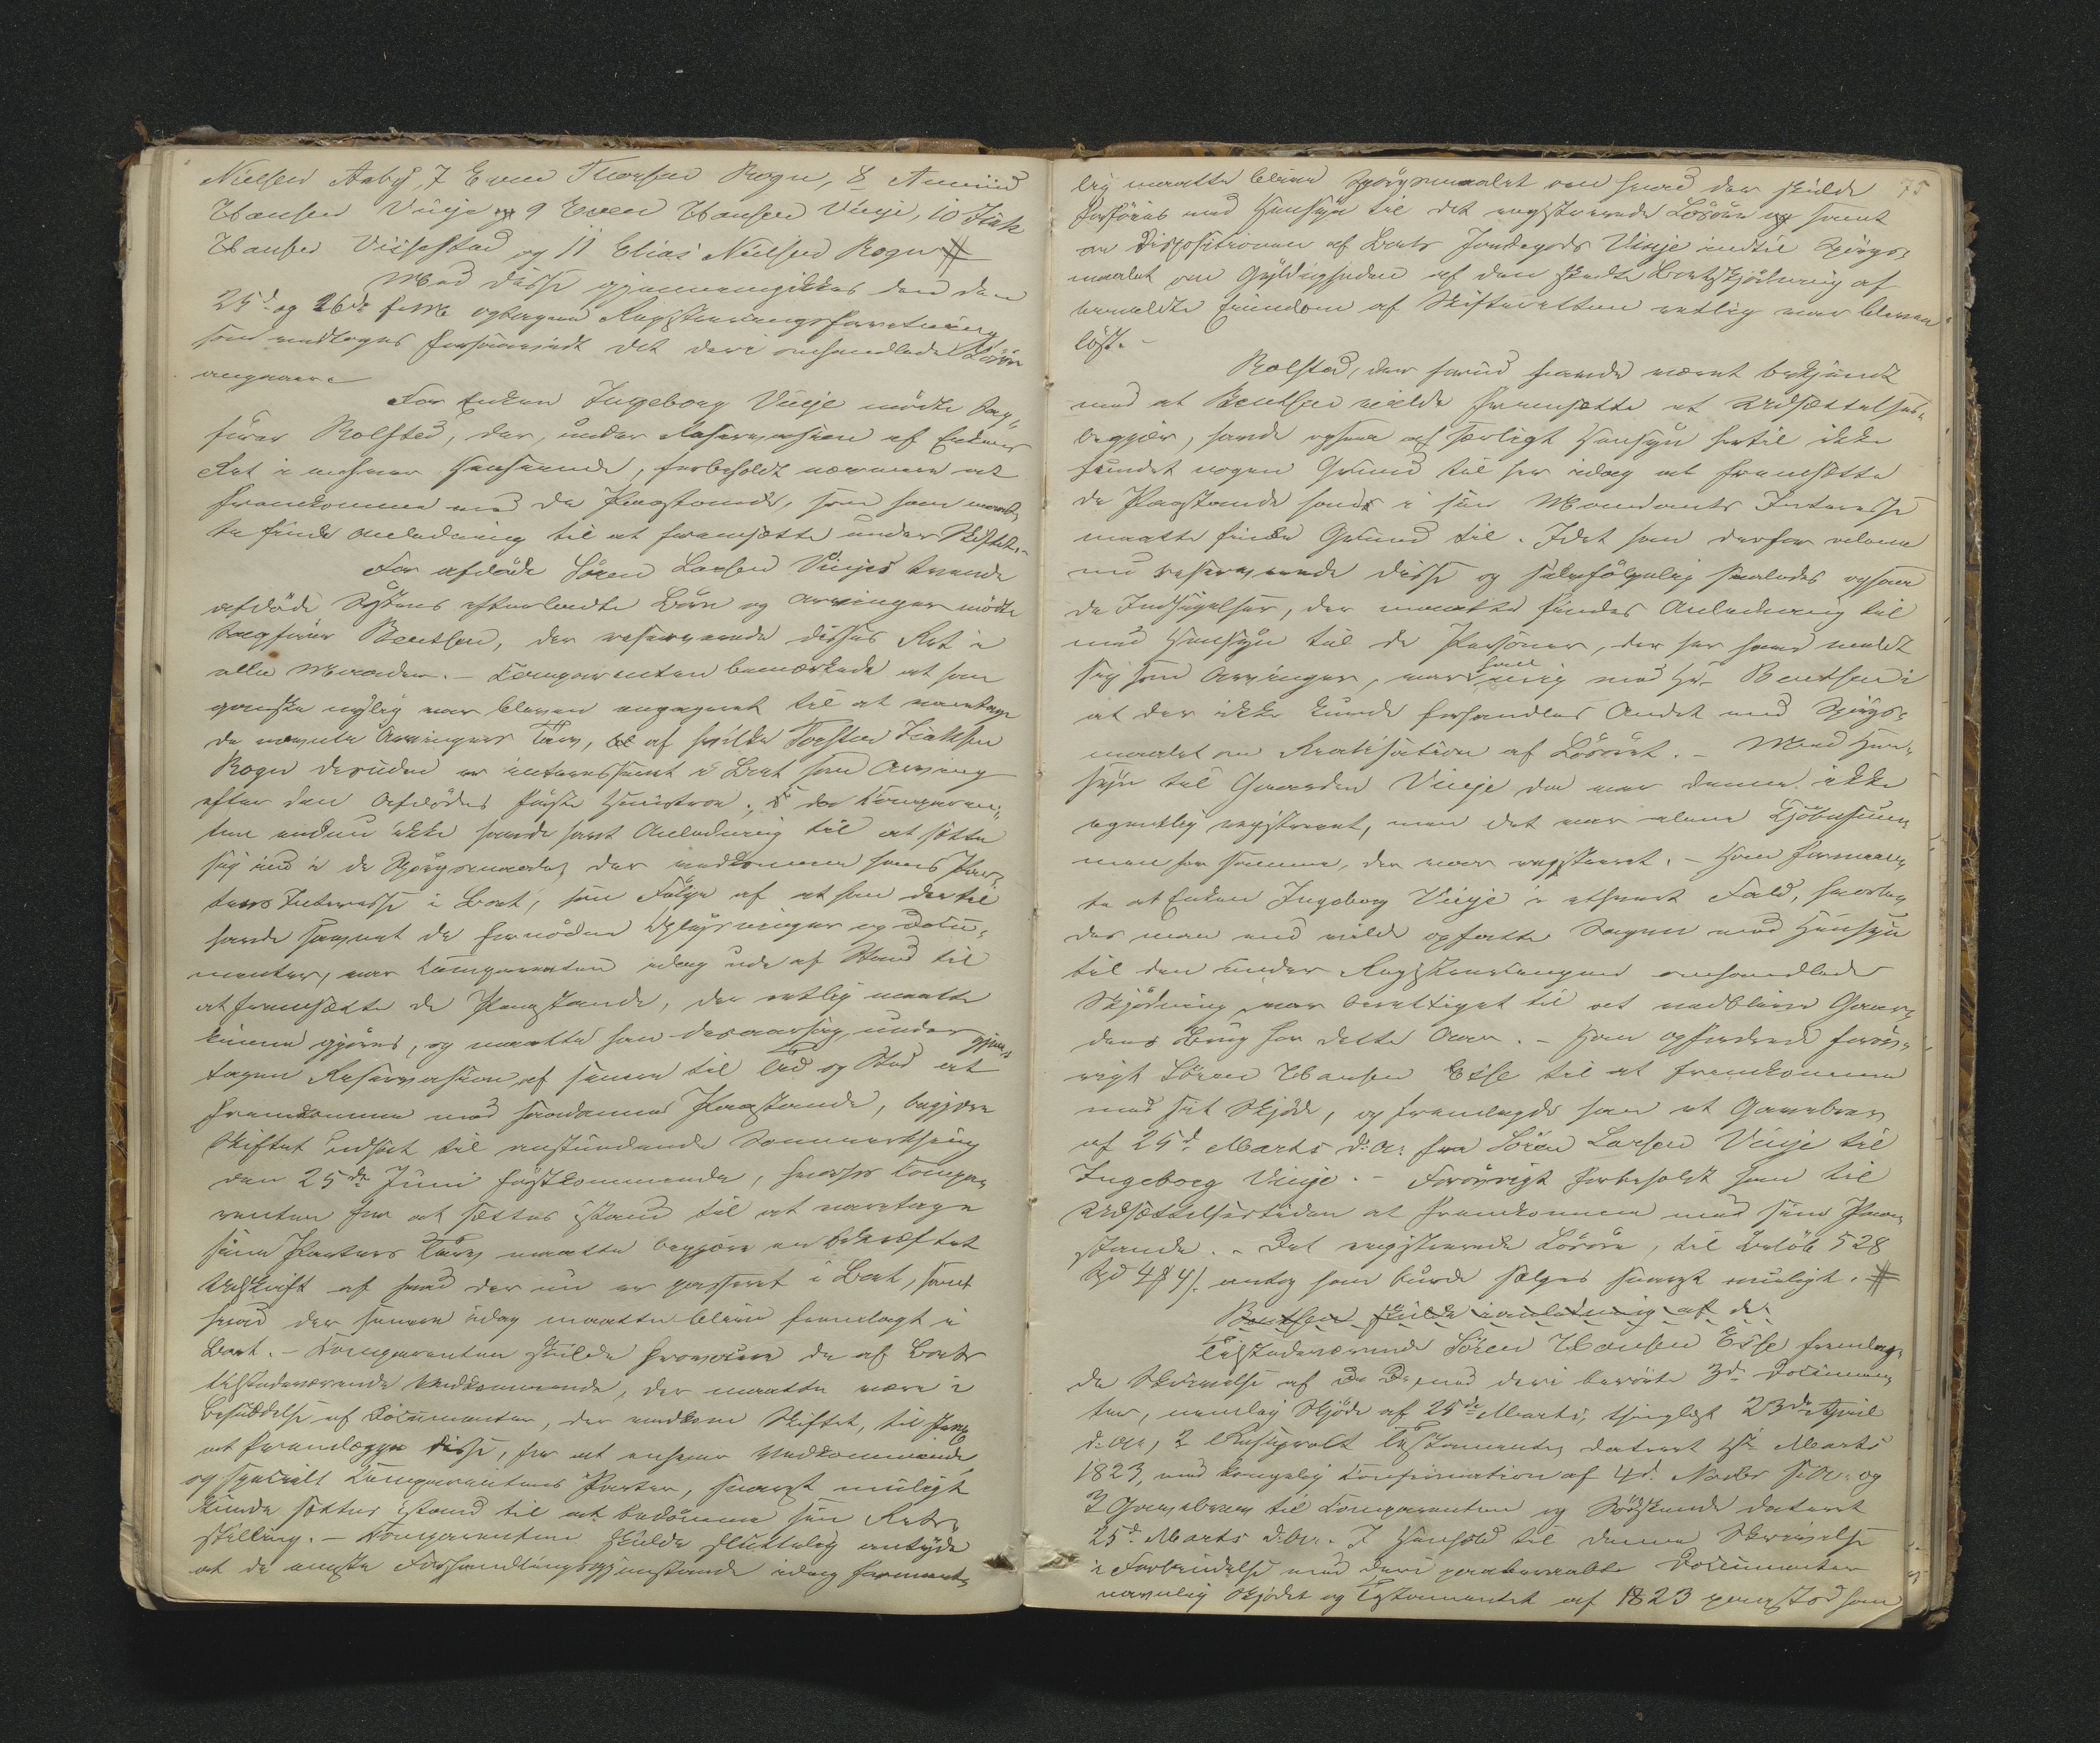 Nielsen Aaby, 7 Even Thorsen Rogn, 8 Amund
Hansen Viige og 9 Even Hansen Viige, 10 Isak
Hansen Viisestad og 11 Elias Nielsen Rogn #
Med disse gjennemgikkes den den
25d og 26de f. M. optagne Registreringsforretning
som vedtoges forsaavidt det deri omhandlede Løsøre
angaaer.
For Enken Ingeborg Viige mødte Sag-
fører Rolfsted, der, under Reservation af Enkens
Ret i enhver Henseende, forbeholdt nærmere at
fremkomme med de Paastande, som han maat-
te finde Anledning til at fremsætte under Skiftet.
For afdøde Søren Larsen Viiges tvende
afdøde Søstres efterladte Børn og Arvinger mødte
Sagfører Bentsen, der reserverede disses Ret i
alle Maader. - Comparenten bemærkede at han
ganske nylig var bleven engageret til at varetage
de nævnte Arvingers Tarv, af hvilke Torsten Isaksen
Rogn desuden er interesseret i Boet som Arving
efter den Afdødes første Hustroe; da Comparen-
ten endnu ikke havde havt Anledning til at sætte
sig ind i de Spørgsmaale, der vedkomme hans Par-
ters Interesse i Boet, som Følge af at han dertil
havde savnet de fornødne Oplysninger og Docu-
menter, var Comparenten idag ude af Stand til
at fremsætte de Paastande, der retlig maatte
kunne gjøres, og maatte han desaarsag under gjen-
tagen Reservation af senere til Tid og Sted at
fremkomme med saadanne Paastande, begjære
Skiftet udsat til anstundende Sommerthing
den 25de Juni førstkommende, hvorhos Compa-
renten for at sættes istand til at varetage
sine Parters Tarv maatte begjære en bekræftet
Udskrift af hvad der nu er passeret i Boet, samt
hvad der senere idag maatte blive fremlagt i
Boet. - Comparenten skulde provocere de af Boets
tilstedeværende Vedkommende, der maatte være i
Besiddelse af Documenter, der vedkom Skiftet, til strax
at fremlægge disse, for at enhver Vedkommende,
og specielt Comparentens Parter, snarest muligt
kunde sættes istand til at bedømme sin Rets-
stilling. - Comparenten skulde sluttelig antyde
at de eneste Forhandlingsgjenstande idag forment-
75
lig maatte blive Spørgsmaalet om hvad der skulde
foretages med Hensyn til det registrerede Løsøre og samt
om Dispositionen af Boets Jordegods Viige indtil Spørgs-
maalet om Gyldigheden af den skedte Bortskjødning af
bemeldte Eiendom af Skifteretten retlig var bleven
løst. -
Rolfsted, der forud havde været bekjendt
med at Bentsen vilde fremsætte et Udsættelses-
begjær, havde ogsaa af særligt Hensyn hertil ikke
fundet nogen Grund til her idag at fremsætte
de Paastande hand i sin Mandants Interesse
maatte finde Grund til. Idet han derfor alene
nu reserverede disse og selvfølgelig saaledes ogsaa
de Indsigelser, der maatte findes Anledning til
med Hensyn til de Personer, der her havde meldt
sig som Arvinger, var han enig med Hr. Bentsen i
at der ikke kunde forhandles Andet end Spørgs-
maalet om Realisation af Løsøret. - Med Hen-
syn til Gaarden Viige da var denne ikke
egentlig registreret, men det var alene Kjøbesum-
men for samme, der var registreret. - Han formeen-
te at Enken Ingeborg Viige i ethvert Fald, hvorle-
des man end vilde opfatte Sagen med Hensyn
til den under Registreringen omhandlede
Skjødning, var berettiget til at vedblive Gaar-
dens Brug for dette Aar. - Han opfordrede forøv-
rigt Søren Hansen Esse til at fremkomme
med sit Skjøde, og fremlagde han et Gavebrev
af 25d Marts d. A. fra Søren Larsen Viige til
Ingeborg Viige. - Forøvrigt forbeholdt han til
Udsættelsestiden at fremkomme med sine Paa-
stande. - Det registrerede Løsøre, til Beløb 528
Spd 4 # 4 /. antog han burde sælges snarest muligt. #
Bentsen skulde i anledning af de
Tilstedeværende Søren Hansen Esse fremlag-
de Skrivelse af D. D. med deri berørte 3de Documen-
ter, nemlig Skjøde af 25de Marts, thinglæst 23de April
d. A., 2 Testamente, dateret 1ste Marts
1823, med kongelig Confirmation af 4d. Novbr s. A. og
3 Gavebrev til Comparenten og Sødskende dateret
25d. Marts d. A. I Henhold til denne Skrivelse
i Forbindelse med deri paaberaabte Documenter
navnlig Skjødet og Testamentet af 1823 paastod han